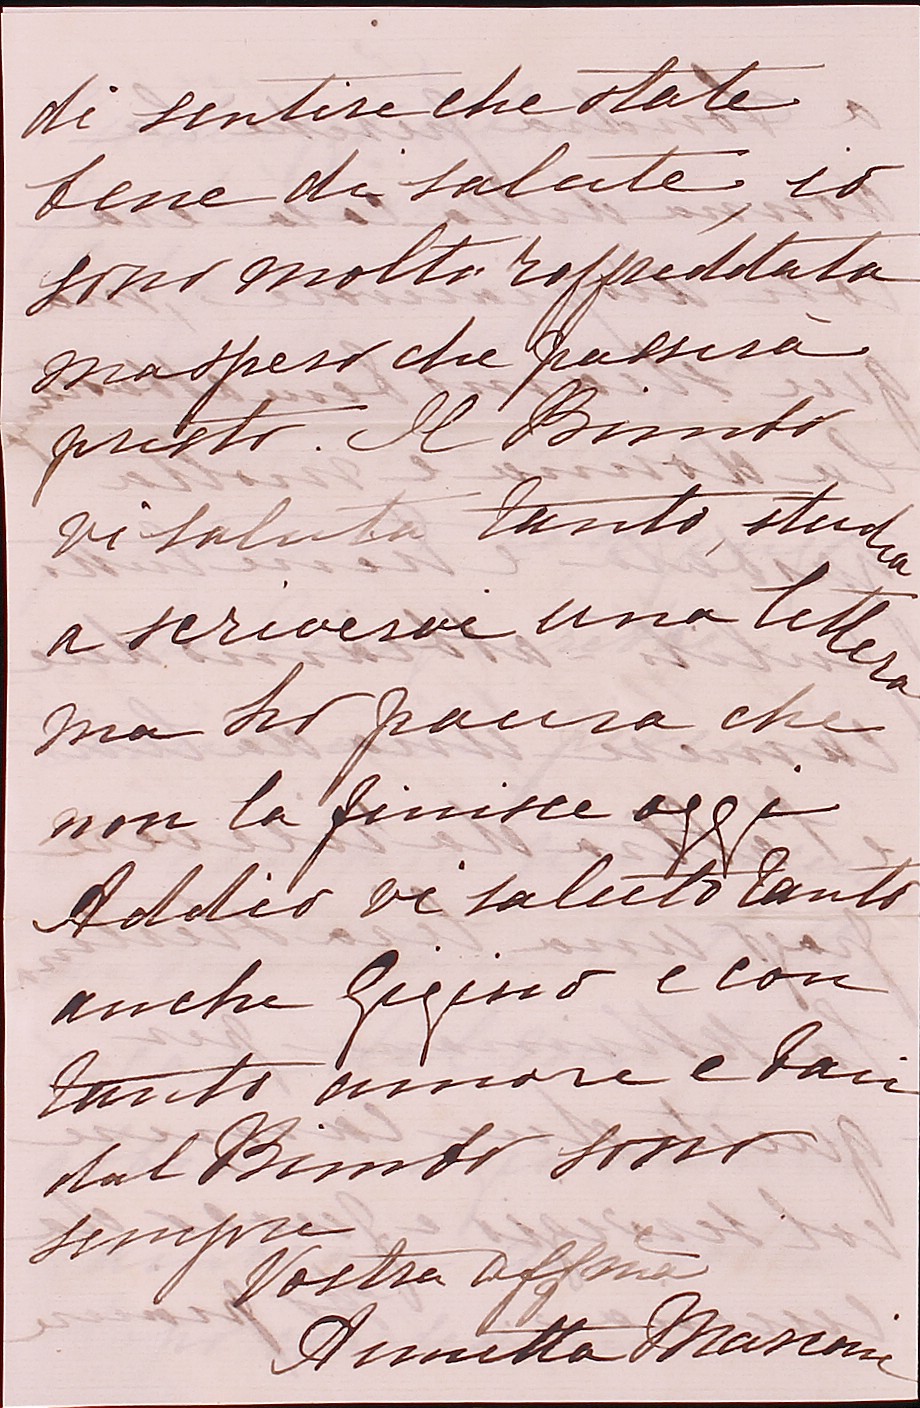 di sentire che state
bene di salute, io
sono molto raffreddata
ma spero che passerà
presto. Il Bimbo
vi saluta tanto, studia
a scrivervi una lettera
ma ho paura che
non la finisce oggi
Addio vi saluto tanto
anche Gigino e con
tanto amore e baci
dal Bimbo sono
sempre
Vostra affma
Annetta Marconi